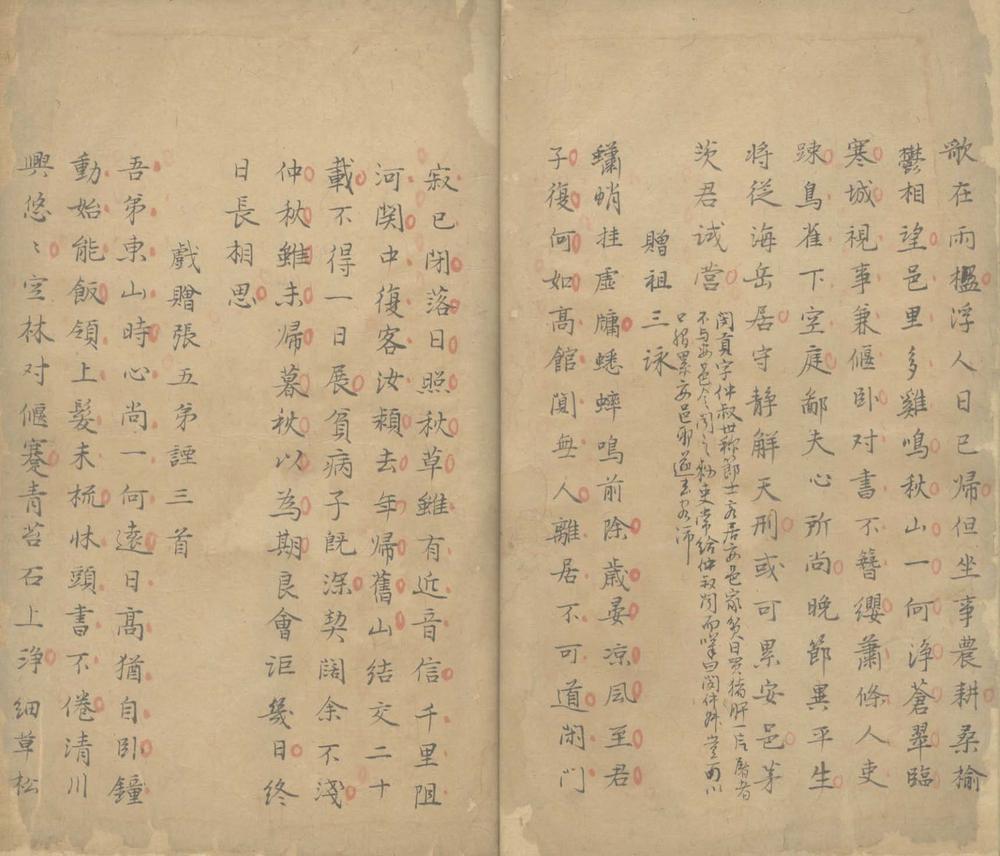 歌在雨楹浮人日已歸但坐事農耕桑榆
鬱相望邑里多雞鳴秋山一何淨蒼翠臨
寒城視事兼偃卧对書不簪纓蕭條人吏
踈鳥雀下空庭鄙夫心所尚晚節異平生
将從海岳居守静解天刑或可累安邑茅
茨君试营
闵貢字仲叔世称節士客居安邑家贫日買猪肝一片屠者
不与安邑令闻之敕吏常给仲叔闻而嘆曰闵仲叔豈
口腹累安邑耶遂去客沛
贈祖三詠
蠨蛸挂虛牖蟋蟀鳴前除歲晏凉風至君
子復何如高館闃無人離居不可道閑门
寂已閉落日照秋草雖有近音信千里阻
河関中復客汝潁去年歸舊山結交二十
載不得一日展貧病子既深契闊余不淺
仲秋雖未歸暮秋以為期良會詎幾日終
日長相思
戲贈張五弟諲三首
吾弟東山時心尚一何遠日髙猶自卧鐘
動始能飯領上髮未梳牀頭書不倦清川
興悠〻空林对偃蹇青苔石上浄細草松